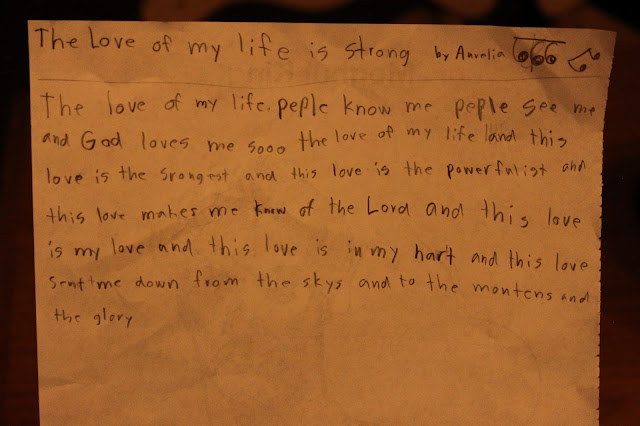 The Love of my life is strong by Aurelia
The love of my life. peple know me peple see me
and God loves me sooo the love of my life land this
love is the srongest and this love is the powerfulist and
this love makes me know of the Lord and this love
is my love and this love is in my hart and this love
sent me down from the skys and to the montens and
the glory